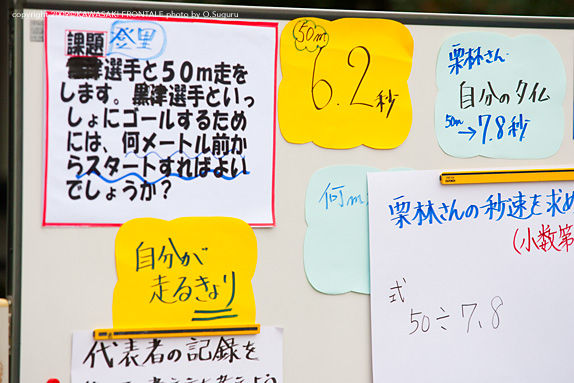 copyright 2009 KAWASAKI FRONTALE photo by O.Suguru
課題 登里
選手と50m走を
します。黒津選手といっ
しょにゴールするために
は、何メートル前か
らスタートすればよい
でしょうか?
50mを
6.2秒
栗林さん
自分のタイム
50m→7.8秒
何m
自分が
走るきょり
栗林さんの秒速を求め
(小数第
式
50÷7.8
代表者の記録を